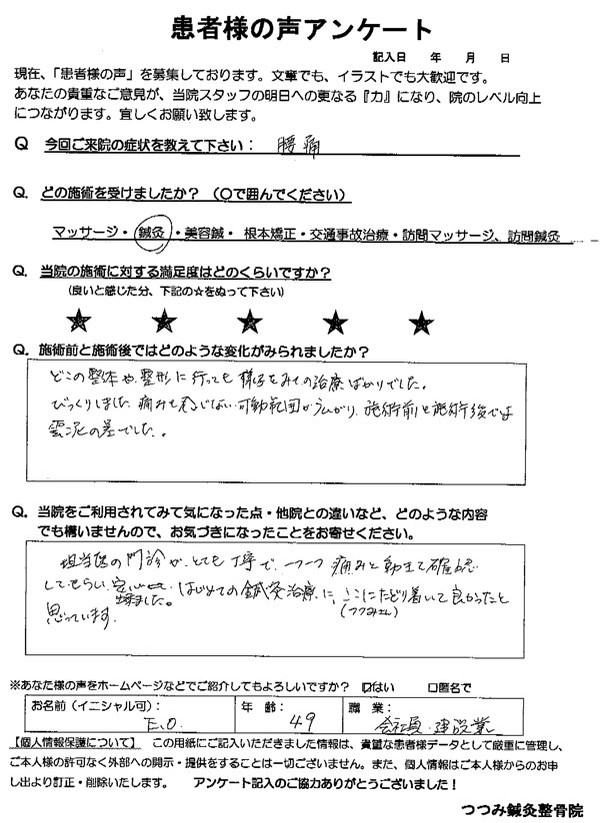 患者様の声アンケート
記入日　年　月　日
現在、「患者様の声」を募集しております。文章でも、イラストでも大歓迎です。
あなたの貴重なご意見が、当院スタッフの明日への更なる『力』になり、院のレベル向上
につながります。宜しくお願い致します。
Q 今回ご来院の症状を教えて下さい： 腰痛
Q. どの施術を受けましたか？（○で囲んでください）
マッサージ・鍼灸・美容鍼・根本矯正・交通事故治療・訪問マッサージ、訪問鍼灸
Q. 当院の施術に対する満足度はどのくらいですか？
（良いと感じた分、下記の☆をぬって下さい）
★ ★ ★ ★ ★
Q. 施術前と施術後ではどのような変化がみられましたか？
どこの整体や整形に行っても様子をみての治療ばかりでした。
びっくりしました 痛みを感じない可動範囲が広がり、施術前と施術後では
雲泥の差でした。
Q. 当院をご利用されてみて気になった点・他院との違いなど、どのような内容
でも構いませんので、お気づきになったことをお寄せください。
担当医の門診が、とても丁寧で、一つ一つ痛みと動きを確認
してもらい、安心出来ました。はじめての鍼灸治療に、ここにたどり着いて良かったと
(つつみさん)
思っています。
※あなた様の声をホームページなどでご紹介してもよろしいですか？ ☑はい □匿名で
お名前（イニシャル可）： E.O. 年齢： 49 職業： 会社員・建設業
【個人情報保護について】 この用紙にご記入いただきました情報は、貴重な患者様データとして厳重に管理し、
ご本人様の許可なく外部への開示・提供をすることは一切ございません。また、個人情報はご本人様からのお申
し出より訂正・削除いたします。 アンケート記入のご協力ありがとうございました！
つつみ鍼灸整骨院